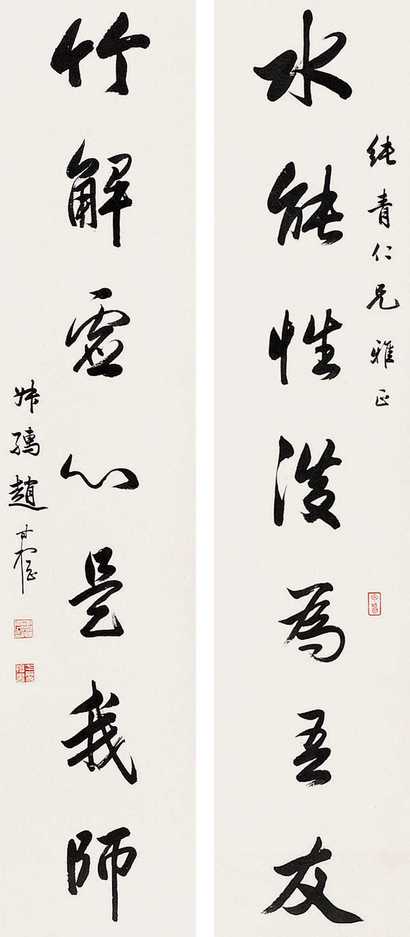 水能性淡為吾友
純青仁兄雅正
竹解虛心是我師
叔孺趙時棡